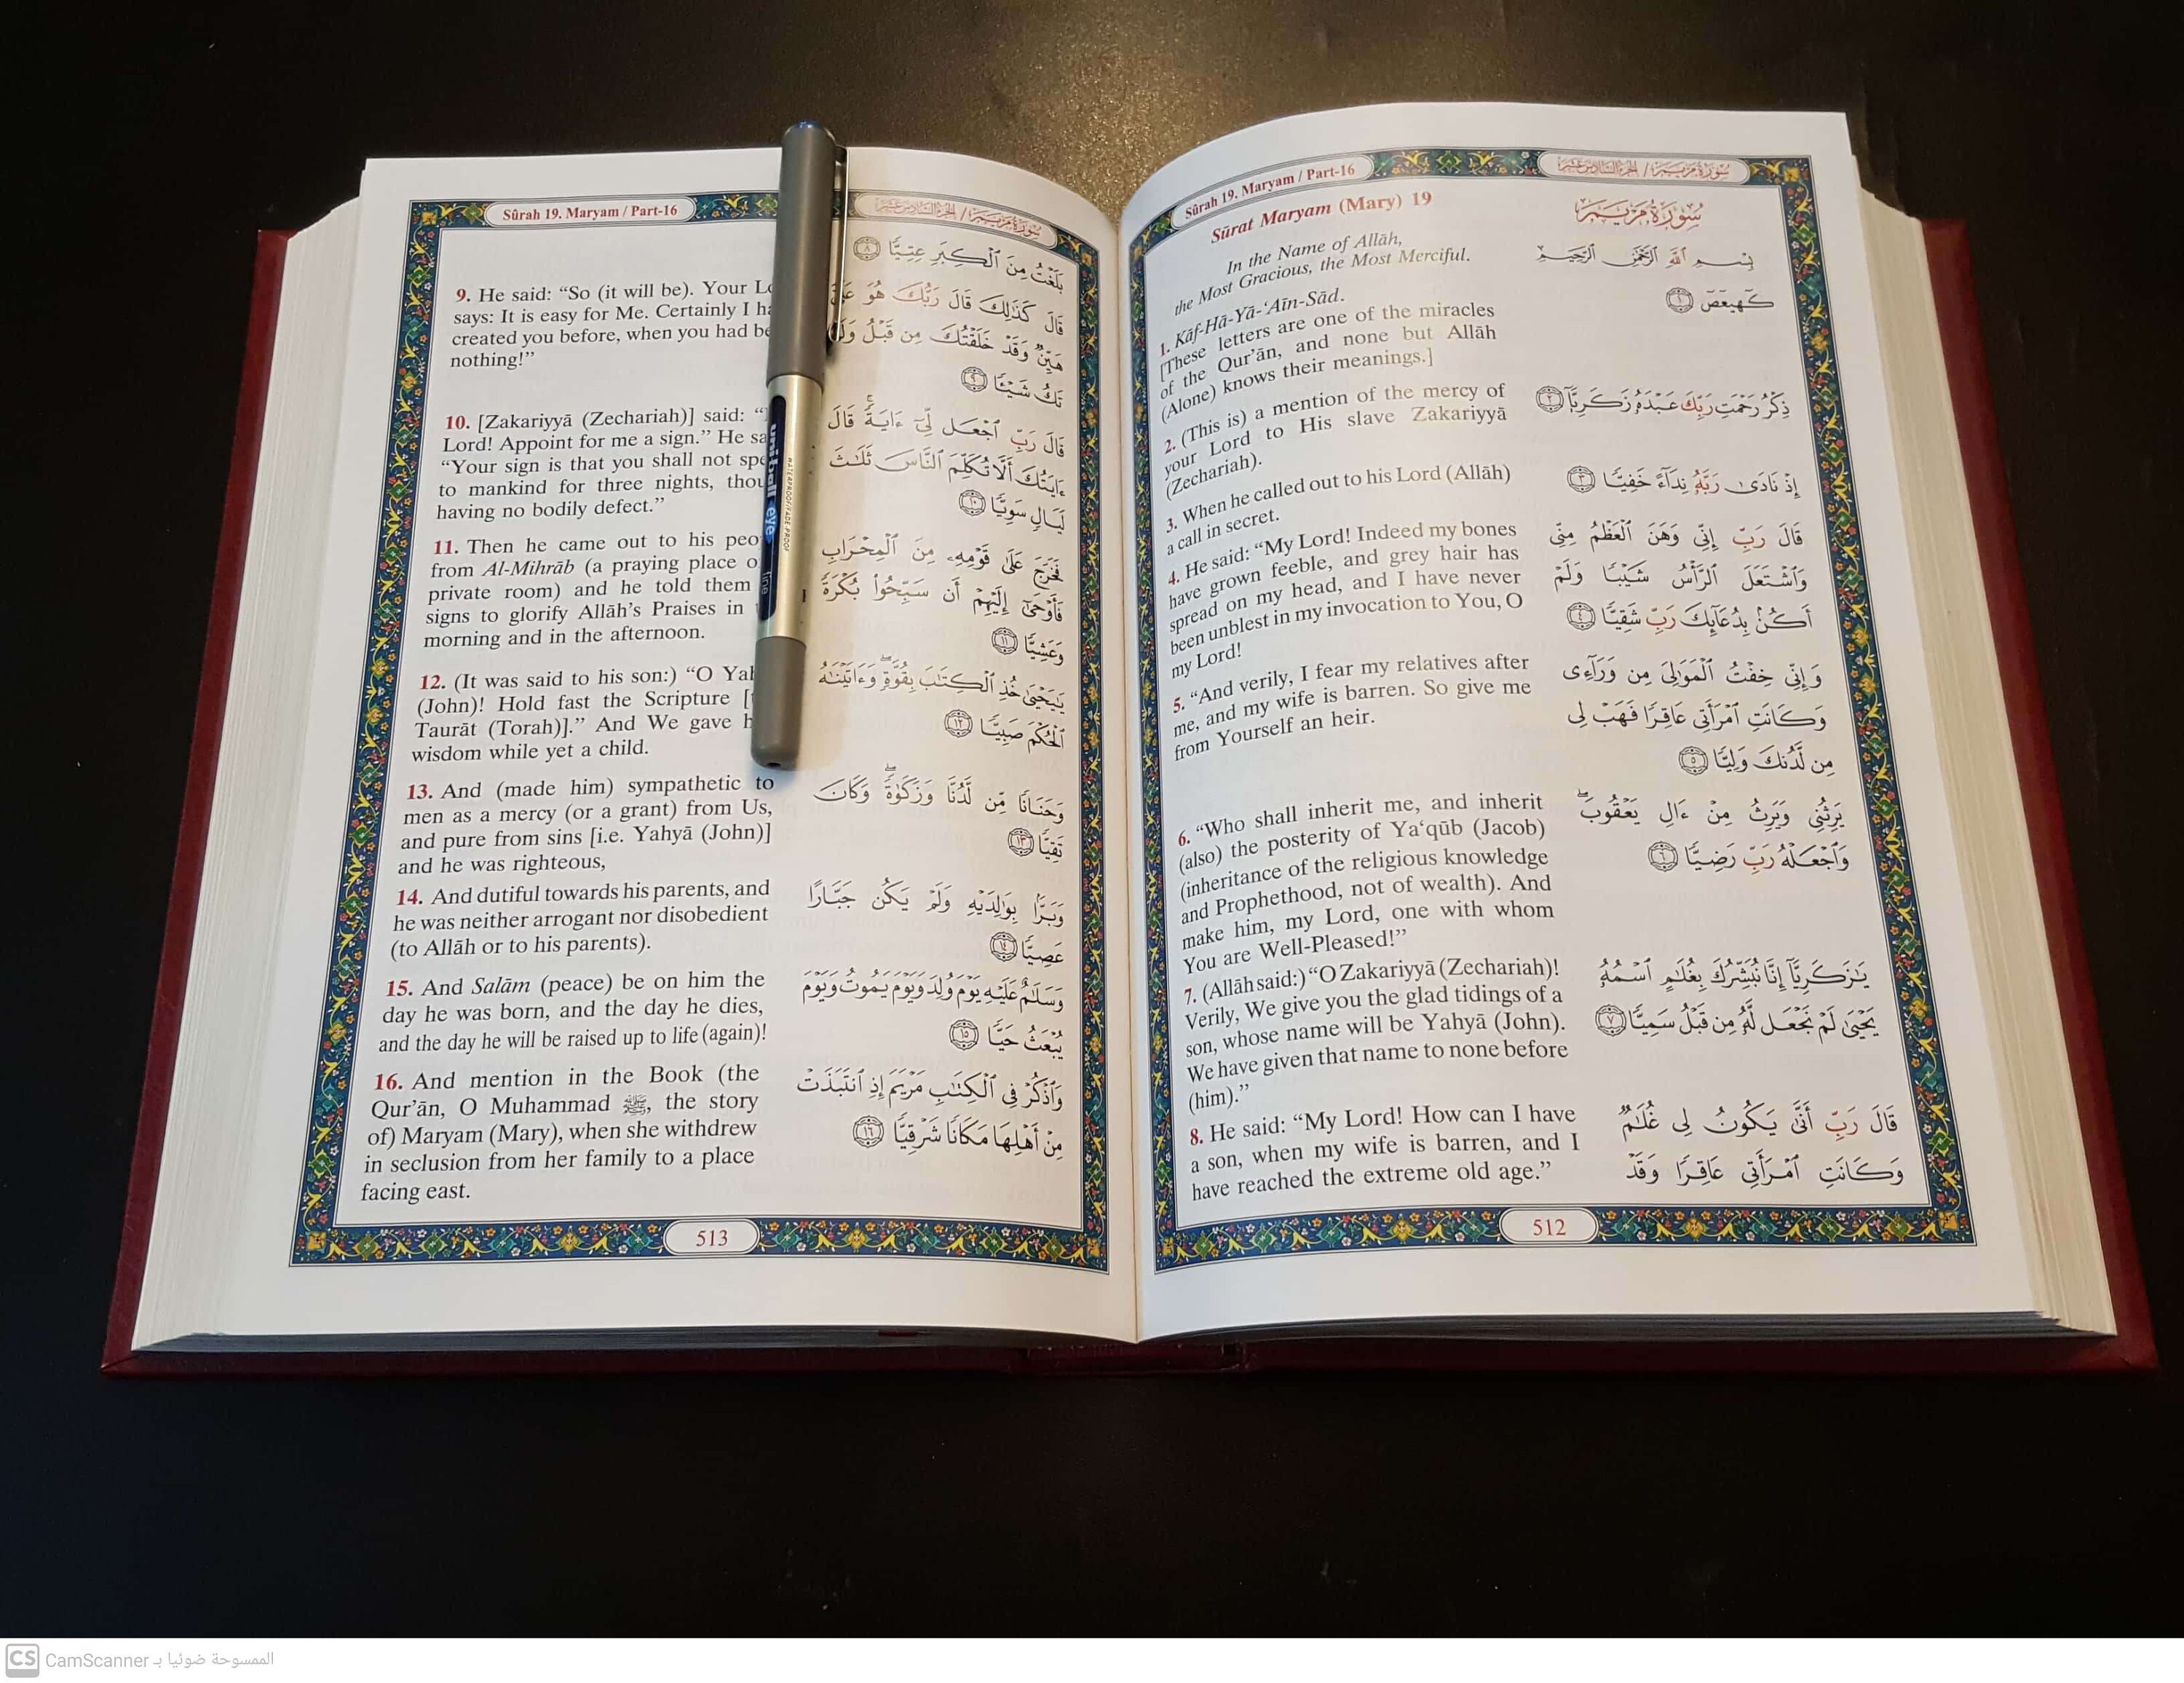 Sûrah 19. Maryam / Part-16
سُورَةُ مَرْيَم / الجزء السادس عشر
Sūrat Maryam (Mary) 19
In the Name of Allāh,
the Most Gracious, the Most Merciful.
1. Kāf-Hā-Yā-‘Aīn-Sād.
[These letters are one of the miracles
of the Qur’ān, and none but Allāh
(Alone) knows their meanings.]
2. (This is) a mention of the mercy of
your Lord to His slave Zakariyyā
(Zechariah).
3. When he called out to his Lord (Allāh)
a call in secret.
4. He said: “My Lord! Indeed my bones
have grown feeble, and grey hair has
spread on my head, and I have never
been unblest in my invocation to You, O
my Lord!
5. “And verily, I fear my relatives after
me, and my wife is barren. So give me
from Yourself an heir.
6. “Who shall inherit me, and inherit
(also) the posterity of Ya‘qūb (Jacob)
(inheritance of the religious knowledge
and Prophethood, not of wealth). And
make him, my Lord, one with whom
You are Well-Pleased!”
7. (Allāh said:) “O Zakariyyā (Zechariah)!
Verily, We give you the glad tidings of a
son, whose name will be Yahyā (John).
We have given that name to none before
(him).”
8. He said: “My Lord! How can I have
a son, when my wife is barren, and I
have reached the extreme old age.”
سُورَةُ مَرْيَمَ
بِسْمِ ٱللَّهِ ٱلرَّحْمَٰنِ ٱلرَّحِيمِ
كٓهيعٓصٓ ١
ذِكْرُ رَحْمَتِ رَبِّكَ عَبْدَهُۥ زَكَرِيَّآ ٢
إِذْ نَادَىٰ رَبَّهُۥ نِدَآءً خَفِيًّا ٣
قَالَ رَبِّ إِنِّى وَهَنَ ٱلْعَظْمُ مِنِّى
وَٱشْتَعَلَ ٱلرَّأْسُ شَيْبًا وَلَمْ
أَكُنۢ بِدُعَآئِكَ رَبِّ شَقِيًّا ٤
وَإِنِّى خِفْتُ ٱلْمَوَٰلِىَ مِن وَرَآءِى
وَكَانَتِ ٱمْرَأَتِى عَاقِرًا فَهَبْ لِى
مِن لَّدُنكَ وَلِيًّا ٥
يَرِثُنِى وَيَرِثُ مِنْ ءَالِ يَعْقُوبَ ۖ
وَٱجْعَلْهُ رَبِّ رَضِيًّا ٦
يَٰزَكَرِيَّآ إِنَّا نُبَشِّرُكَ بِغُلَٰمٍ ٱسْمُهُۥ
يَحْيَىٰ لَمْ نَجْعَل لَّهُۥ مِن قَبْلُ سَمِيًّا ٧
قَالَ رَبِّ أَنَّىٰ يَكُونُ لِى غُلَٰمٌ
وَكَانَتِ ٱمْرَأَتِى عَاقِرًا وَقَدْ
512
Sûrah 19. Maryam / Part-16
سُورَةُ مَرْيَم / الجزء السادس عشر
9. He said: “So (it will be). Your
says: It is easy for Me. Certainly I
created you before, when you had
nothing!”
10. [Zakariyyā (Zechariah)] said:
Lord! Appoint for me a sign.” He
“Your sign is that you shall not
to mankind for three nights,
having no bodily defect.”
11. Then he came out to his
from Al-Mihrāb (a praying place
private room) and he told them
signs to glorify Allāh’s Praises in
morning and in the afternoon.
12. (It was said to his son:) “O
(John)! Hold fast the Scripture
Taurāt (Torah)].” And We gave
wisdom while yet a child.
13. And (made him) sympathetic to
men as a mercy (or a grant) from Us,
and pure from sins [i.e. Yahyā (John)]
and he was righteous,
14. And dutiful towards his parents, and
he was neither arrogant nor disobedient
(to Allāh or to his parents).
15. And Salām (peace) be on him the
day he was born, and the day he dies,
and the day he will be raised up to life (again)!
16. And mention in the Book (the
Qur’ān, O Muhammad ﷺ, the story
of) Maryam (Mary), when she withdrew
in seclusion from her family to a place
facing east.
بَلَغْتُ مِنَ ٱلْكِبَرِ عِتِيًّا ٨
قَالَ كَذَٰلِكَ قَالَ رَبُّكَ هُوَ
هَيِّنٌ وَقَدْ خَلَقْتُكَ مِن قَبْلُ وَلَمْ
تَكُ شَيْـًٔا ٩
قَالَ رَبِّ ٱجْعَل لِّىٓ ءَايَةً ۚ قَالَ
ءَايَتُكَ أَلَّا تُكَلِّمَ ٱلنَّاسَ ثَلَٰثَ
لَيَالٍ سَوِيًّا ١٠
فَخَرَجَ عَلَىٰ قَوْمِهِۦ مِنَ ٱلْمِحْرَابِ
فَأَوْحَىٰٓ إِلَيْهِمْ أَن سَبِّحُوا۟ بُكْرَةً
وَعَشِيًّا ١١
يَٰيَحْيَىٰ خُذِ ٱلْكِتَٰبَ بِقُوَّةٍ ۖ وَءَاتَيْنَٰهُ
ٱلْحُكْمَ صَبِيًّا ١٢
وَحَنَانًا مِّن لَّدُنَّا وَزَكَوٰةً ۖ وَكَانَ
تَقِيًّا ١٣
وَبَرًّۢا بِوَٰلِدَيْهِ وَلَمْ يَكُن جَبَّارًا
عَصِيًّا ١٤
وَسَلَٰمٌ عَلَيْهِ يَوْمَ وُلِدَ وَيَوْمَ يَمُوتُ وَيَوْمَ
يُبْعَثُ حَيًّا ١٥
وَٱذْكُرْ فِى ٱلْكِتَٰبِ مَرْيَمَ إِذِ ٱنتَبَذَتْ
مِنْ أَهْلِهَا مَكَانًا شَرْقِيًّا ١٦
513
uni-ball eye fine
WATERPROOF/FADE-PROOF
CS CamScanner الممسوحة ضوئيا بـ